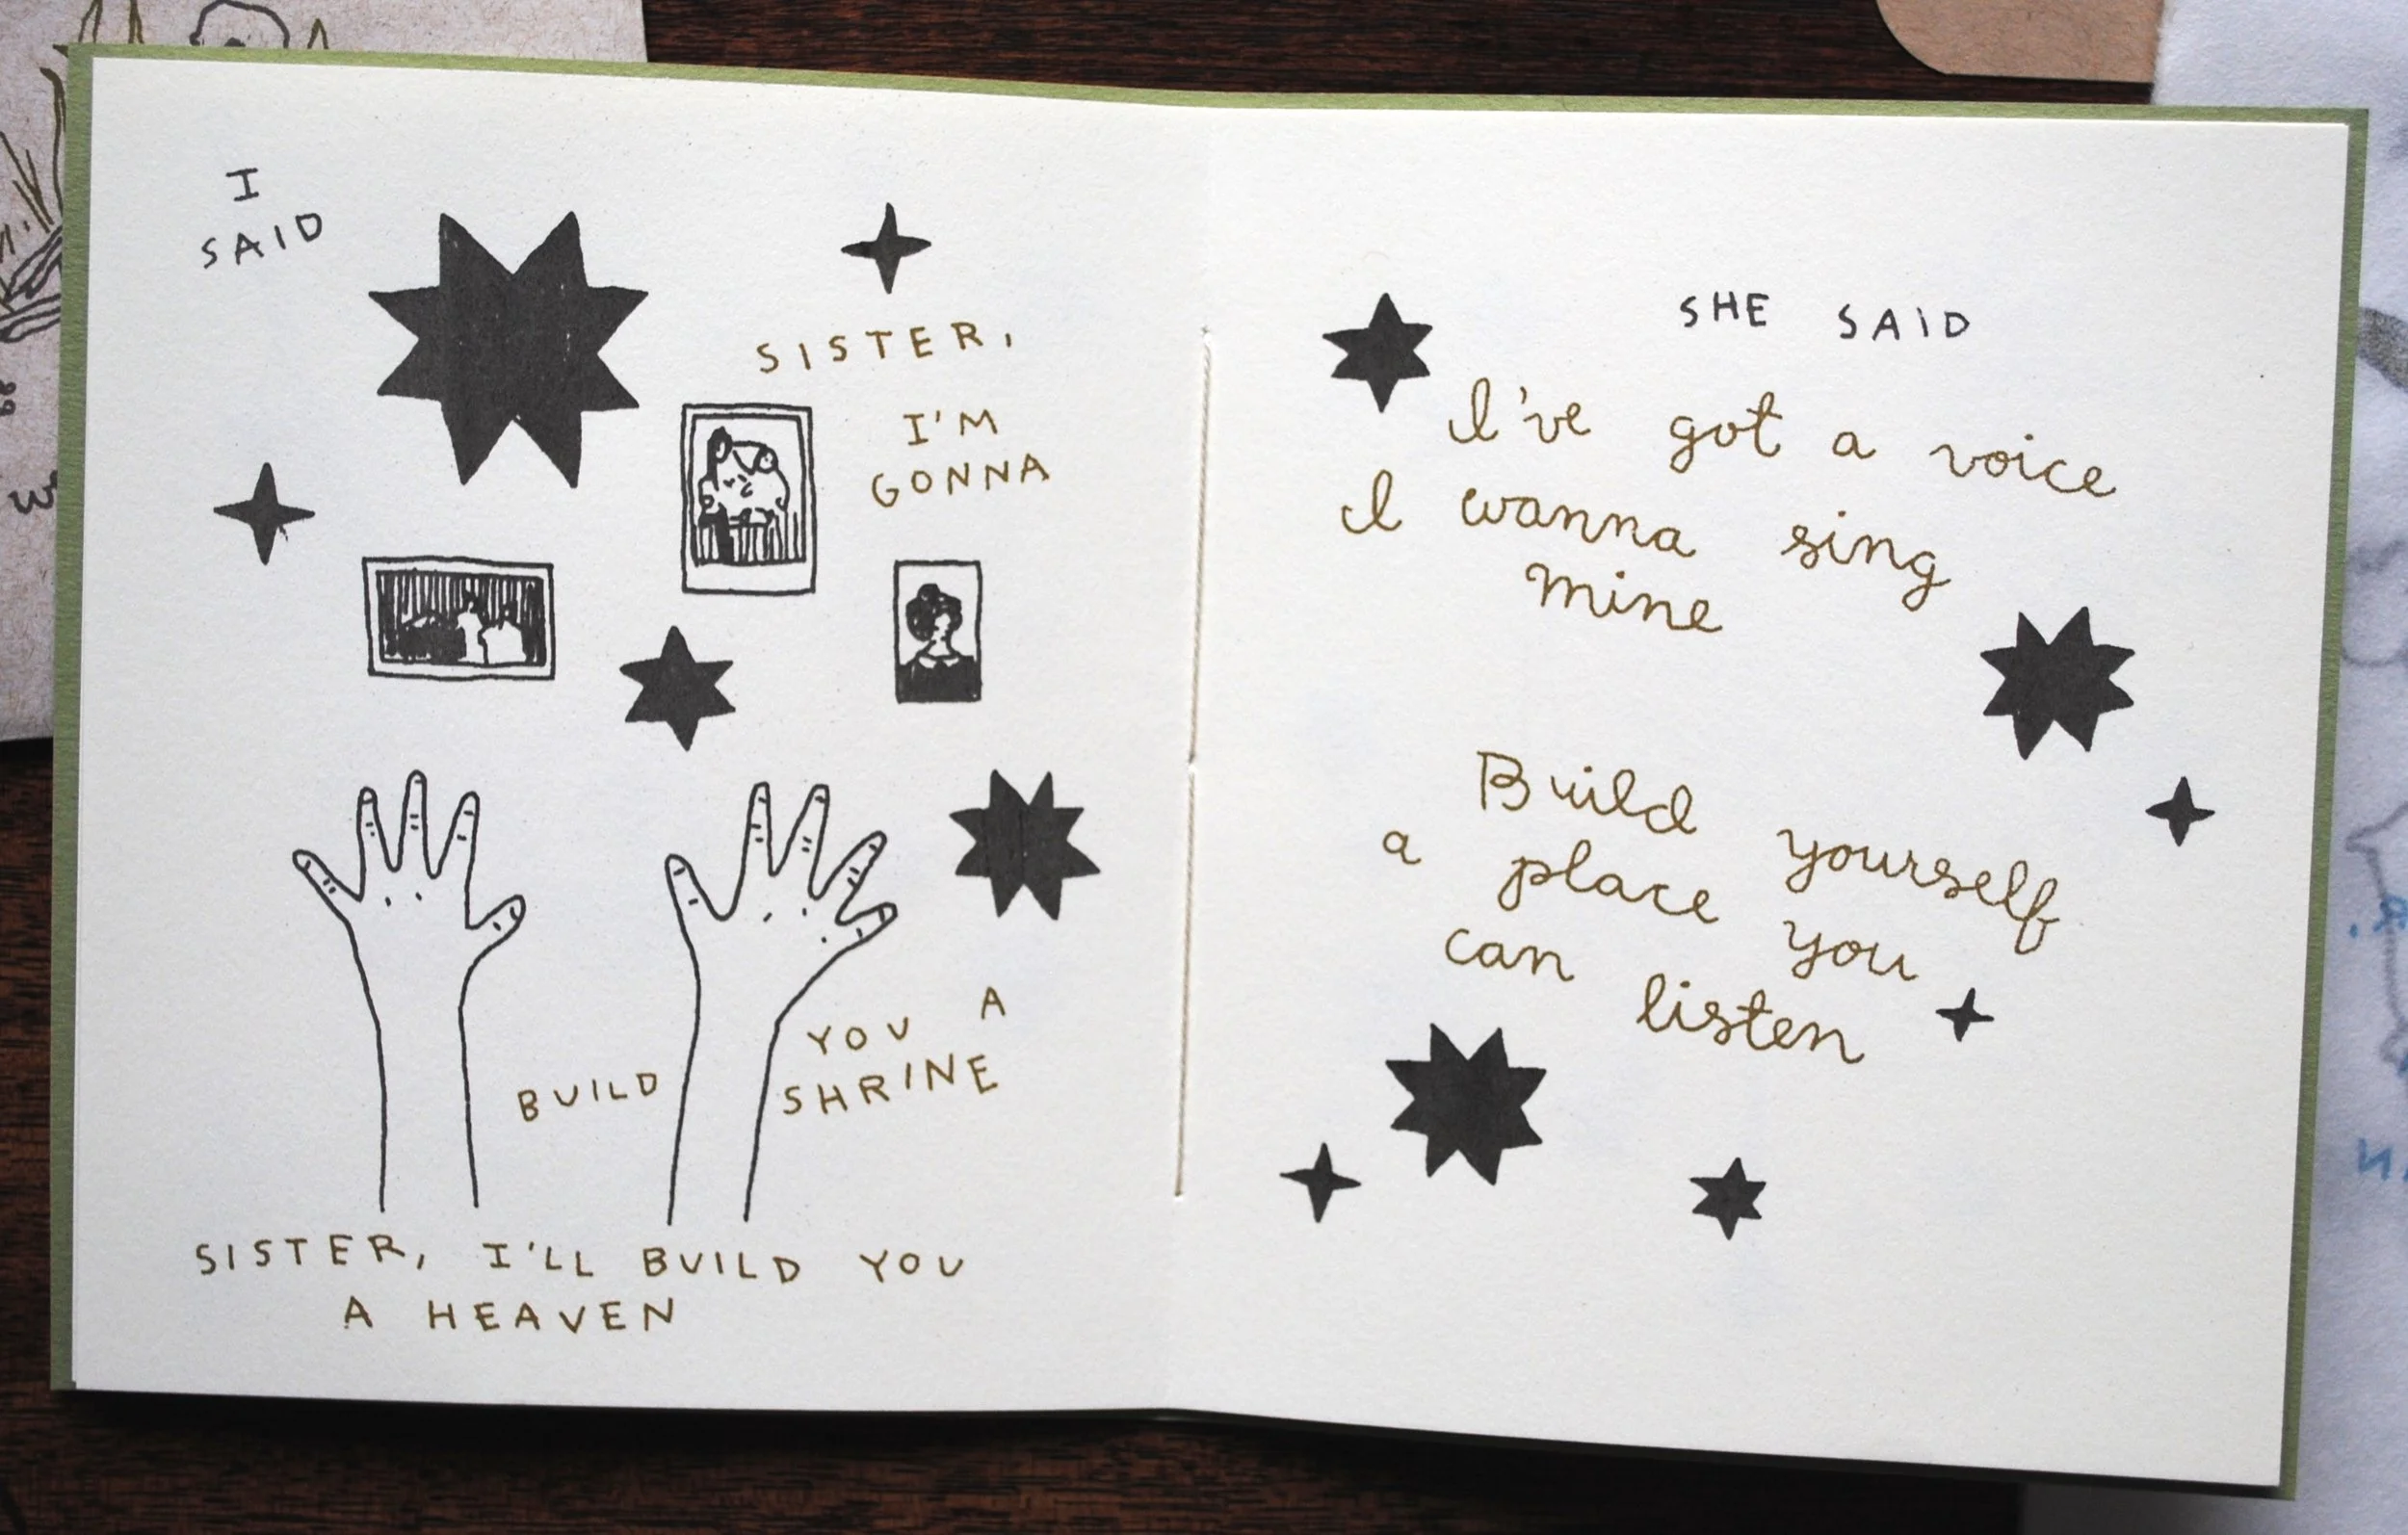 I
SAID
SISTER,
I'M
GONNA
BUILD
YOU A
SHRINE
SISTER, I'LL BUILD YOU
A HEAVEN
SHE SAID
I've got a voice
I wanna sing
mine
Build yourself
a place you
can listen